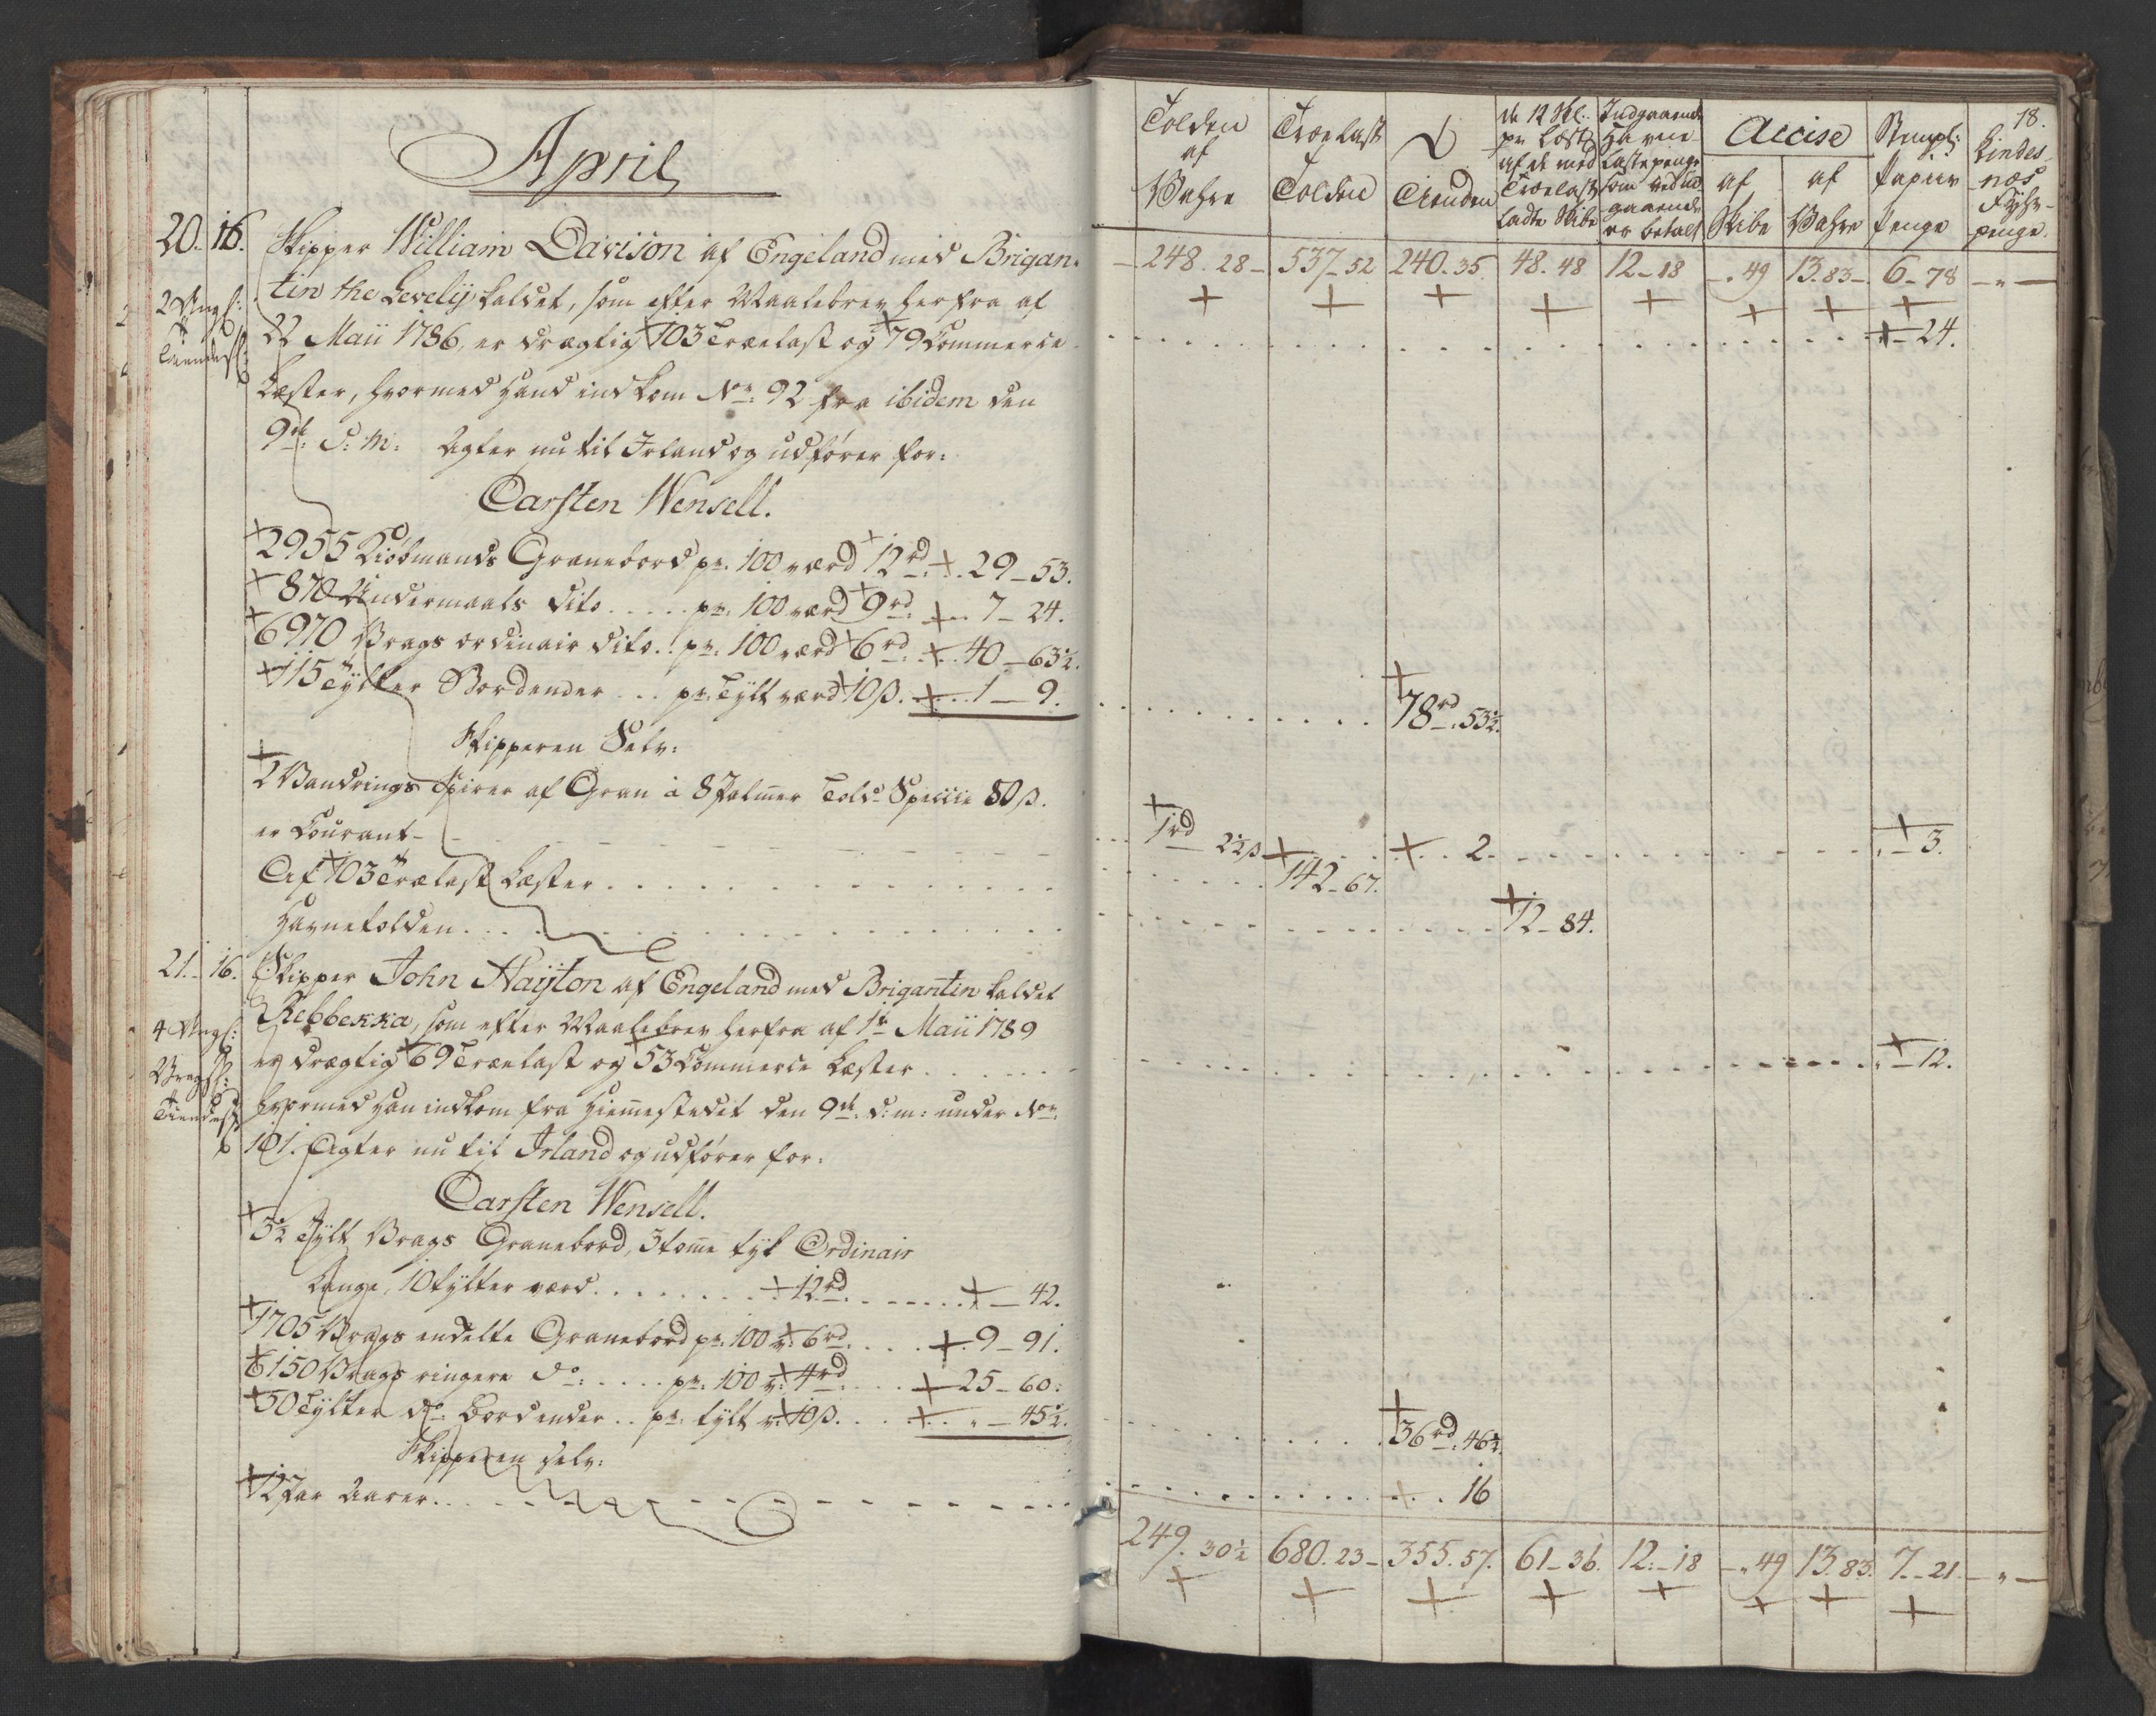 April
20. 16. Skipper William Davison af Engeland med Brigan-
tin the Levelÿ kaldet, som efter Maalebrev herfra af
22 Maii 1786, er drægtig 103 Trælast og 79 Commerce
Læster, hvormed Hand indkom No: 92 fra ibidem den
9de: d: M: Agter nu til Irland og udfører for:
Carsten Wensell.
2955 Kiöbmands Granebord pr. 100 værd 12rd: 29-53.
870 Undermaals dito pr. 100 værd 9rd: 7-24.
6970 Vrags ordinair dito pr. 100 værd 6rd: 40-63½.
115 Tylter Bordender pr. Tylt værd 10ß. 1-9.
Skipperen Selv:
2 Vandrings Spirer af Gran à 8 Palmer Told Specie 80ß.
er Courant
Af 103 Trælast Læster
Havnetolden
21. 16. Skipper John Naÿlon af Engeland med Brigantin kaldet
Rebbekka, som efter Maalebrev herfra af 1te Maii 1789
er drægtig 69 Trælast og 53 Commerce Læster
hvormed Han indkom fra Hiemmestedet den 9de d: m: under No:
101. Agter nu til Irland og udfører for:
Carsten Wensell.
3½ Tylt Vrags Granebord, 3 tomme tyk Ordinair
Længe, 10 tylter værd 12rd. 42.
1705 Vrags endelte Granebord pr. 100 v: 6rd. 9-91.
6150 Vrags ringere do: pr. 100 v: 4rd. 25-60.
50 Tylter do: Bordender pr. tylt v: 10ß. 45½.
Skipperen selv:
12 Par Aarer
18.
Tolden af Vahre
Trælast Tolden
Tienden
de 12 Skl. pr Læst af de med Trælast ladte Skibe
Indgaaende Havne Lastepenge som ved udgaaende er betalt
Accise
af Skibe
af Vahre
Stempl: Papiir Penge
Lindesnæs Fyhrpenge.
248. 28 537-52 240. 35. 48. 48 12-18 49 13. 83 6-78
24.
78rd. 53½.
1rd 22ß 2. 3.
142-67.
12-84.
12.
36rd. 46½.
16
249. 30½ 680. 23 355. 57. 61-36. 12-18 49 13. 83. 7-21